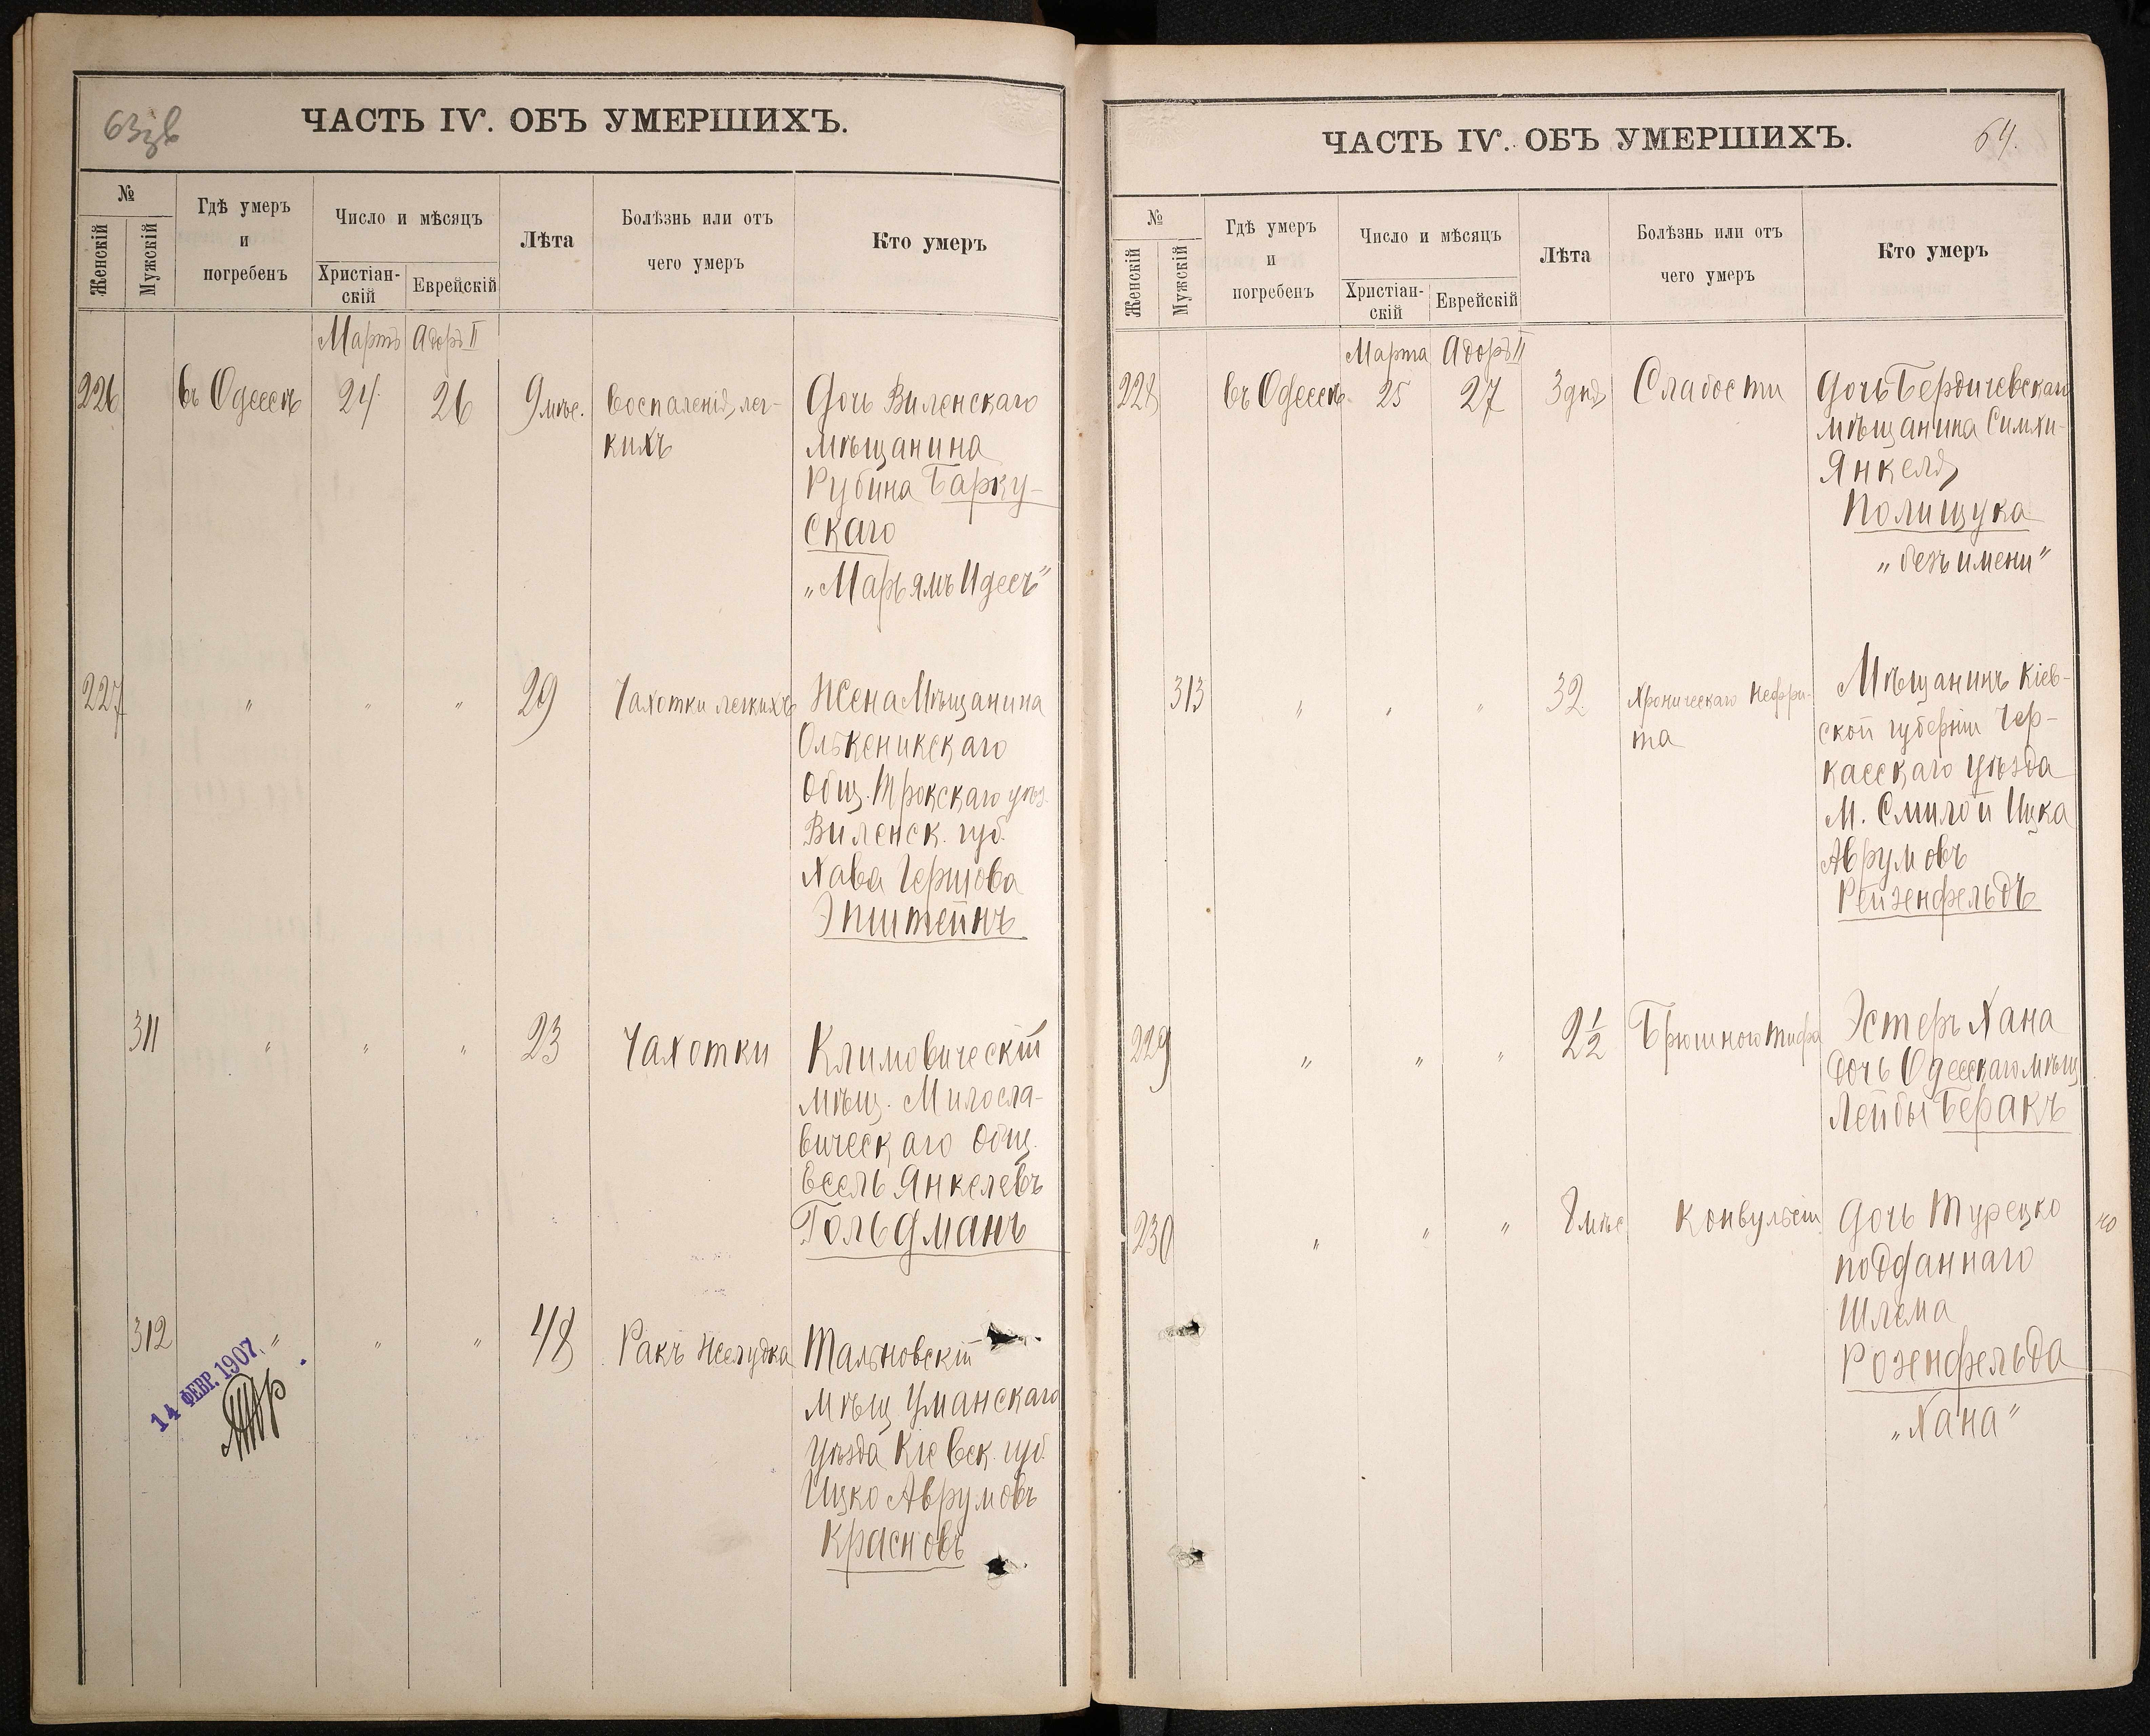 63 зв
ЧАСТЬ IV. ОБЪ УМЕРШИХЪ.
№
Женскій
Мужскій
Гдѣ умеръ
и
погребенъ
Число и мѣсяцъ
Христіан-
скій
Еврейскій
Лѣта
Болѣзнь или отъ
чего умеръ
Кто умеръ
Мартъ Адоръ II
226 въ Одессѣ 24 26 9 мѣс. Воспаленія лег- Дочь Виленскаго
кихъ мѣщанина
Рубина Барку-
скаго
„Марьямъ Идесъ"
227 " " " 29 Чахотки легкихъ Жена Мѣщанина
Олькеникскаго
Общ. Трокскаго уѣз.
Виленск. губ.
Хава Герцова
Эпштейнъ
311 " " " 23 Чахотки Климовическій
мѣщ. Милосла-
вическаго Общ.
Есель Янкелевъ
Гольдманъ
312 " " " 48 Ракъ Желудка Тальновскій
мѣщ Уманскаго
уѣзда Кіевск. губ.
Ицко Аврумовъ
Красновъ
14 ФЕВР. 1907
ЧАСТЬ IV. ОБЪ УМЕРШИХЪ.
64.
№
Женскій
Мужскій
Гдѣ умеръ
и
погребенъ
Число и мѣсяцъ
Христіан-
скій
Еврейскій
Лѣта
Болѣзнь или отъ
чего умеръ
Кто умеръ
Марта Адоръ II
228 въ Одессѣ 25 27 3 дня Слабости Дочь Бердичевскаго
мѣщанина Симхи-
Янкеля
Полищука
„безъ имени"
313 " " " 32 Хроническаго Нефри- Мѣщанинъ Кіев-
та ской губерніи Чер-
касскаго уѣзда
М. Смилой Ицка
Аврумовъ
Рейзенфельдъ
229 " " " 2½ Брюшного тифа Эстеръ Хана
дочь Одесскаго мѣщ
Лейбы Беракъ
230 " " " 8 мѣс Конвульсіи Дочь Турецко
го
подданнаго
Шлема
Розенфельда
„Хана"